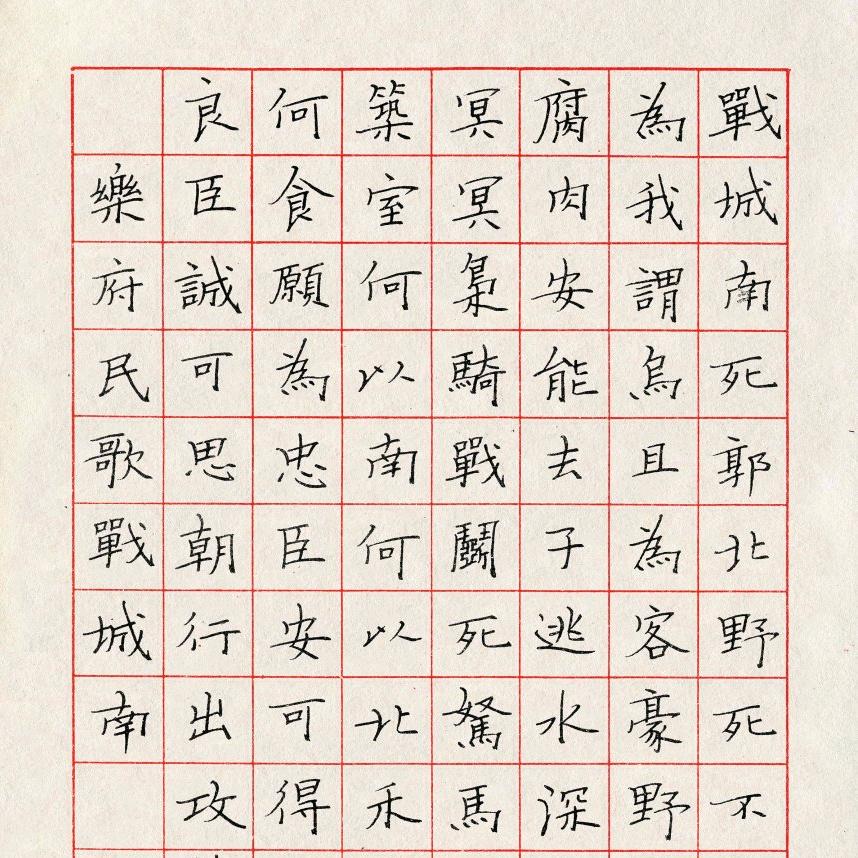 戰城南死郭北野死不
為我謂烏且為客豪野
腐肉安能去子逃水深
冥冥梟騎戰鬭死駑馬
築室何以南何以北禾
何食願為忠臣安可得
良臣誠可思朝行出攻
樂府民歌戰城南